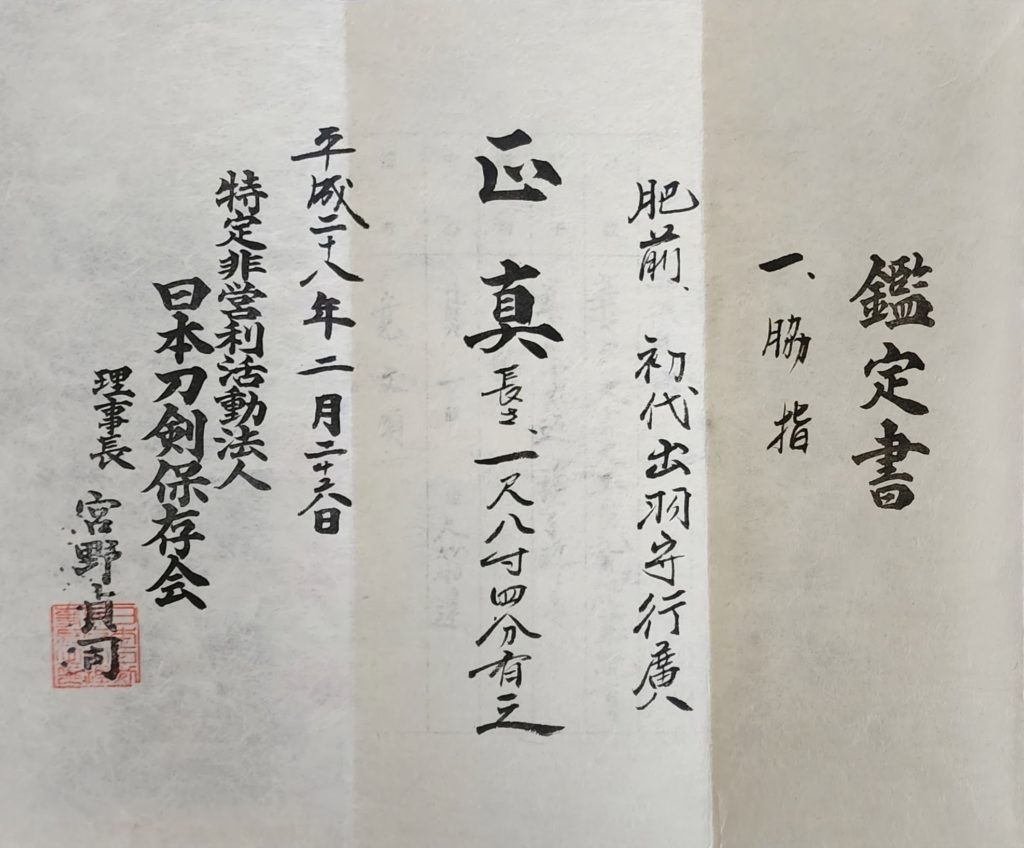 鑑定書
一、脇指
肥前、初代出羽守行廣
正真
長さ、一尺八寸四分有之
平成二十八年二月二十八日
特定非営利活動法人
日本刀剣保存会
理事長 宮野貞司